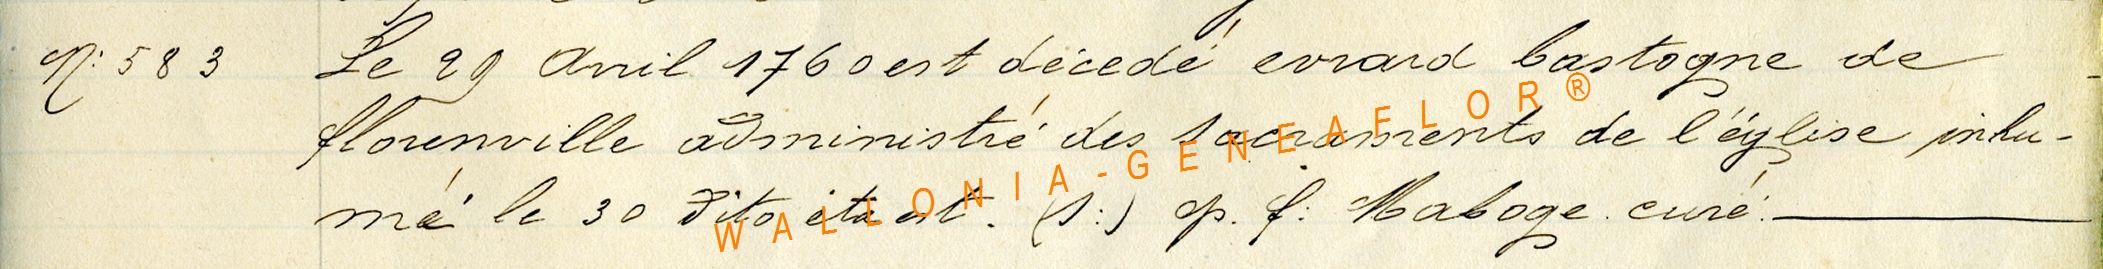 N: 583 Le 29 avril 1760 est décedé evrard bastogne de
florenville administré des sacraments de l'église inhu-
mé le 30 dito ita est. (s:) p. f: Maboge. curé.
WALLONIA-GENEAFLOR®